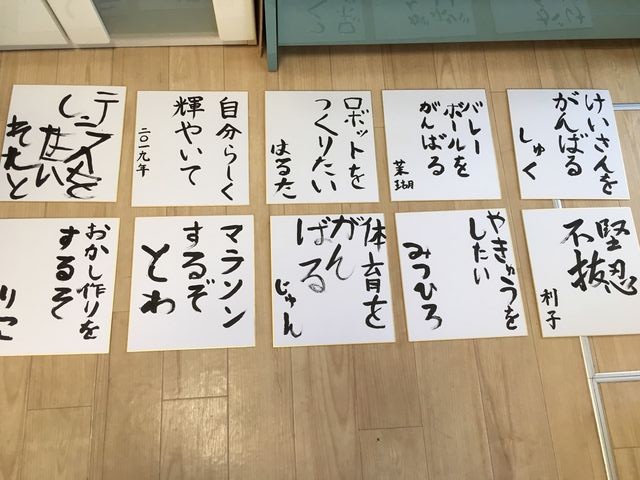 けいさんを
がんばる
しゅく
バレー
ボールを
がんばる
ロボットを
つくりたい
はるた
自分らしく
輝やいて
二〇一九年
テニスを
したい
堅忍
不抜
利子
やきゅうを
したい
みつひろ
体育を
がん
ばる
じゅん
マラソン
するぞ
とわ
おかし作りを
するぞ
りこ